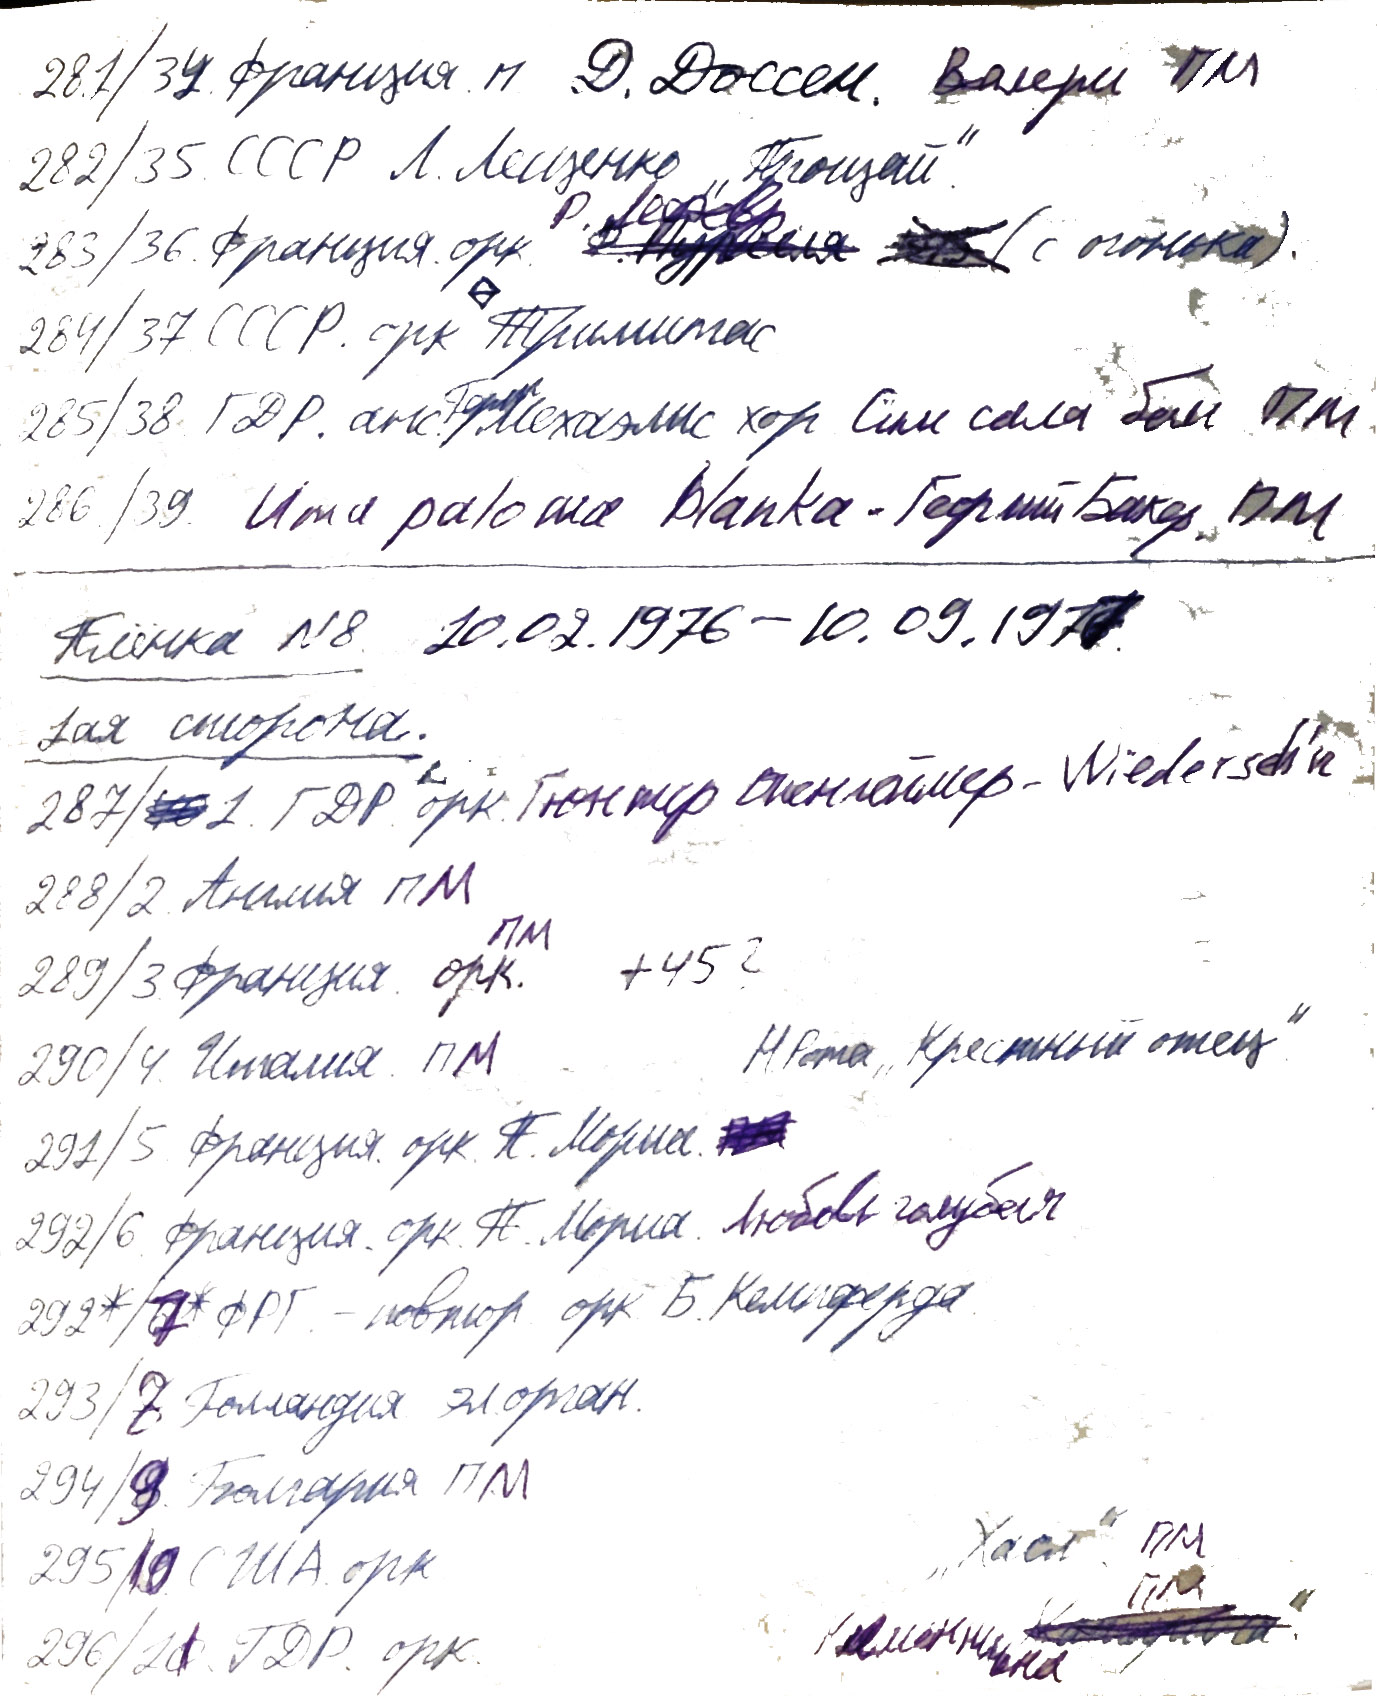 281/34. Франция. п Д. Дассен. Валери ПМ
282/35. СССР Л. Лещенко „Прощай“.
Р. Лефевр
283/36. Франция. орк. (с огонька).
284/37 СССР. орк Тримитас
285/38 ГДР. анс. Мехаэлис хор Сим сала бим ПМ
286/39. Una paloma blanka - Георгий Бакер. ПМ
Плёнка №8 10.02.1976 – 10.09.1977.
1ая сторона.
287/1. ГДР. орк. Гюнтер - Wiedersch'n
288/2. Англия ПМ
ПМ
289/3. Франция. орк. +45?
290/4. Италия. ПМ Н Рота „Крестный отец“
291/5 Франция. орк. П. Мориа.
292/6. Франция. орк. П. Мориа. Любовь голубая
292*/7* ФРГ. – повтор орк Б. Кемпферда
293/7. Голландия эл. орган.
294/9. Болгария ПМ
295/10 США. орк „Хасл“. ПМ
ПМ
296/11. ГДР. орк.